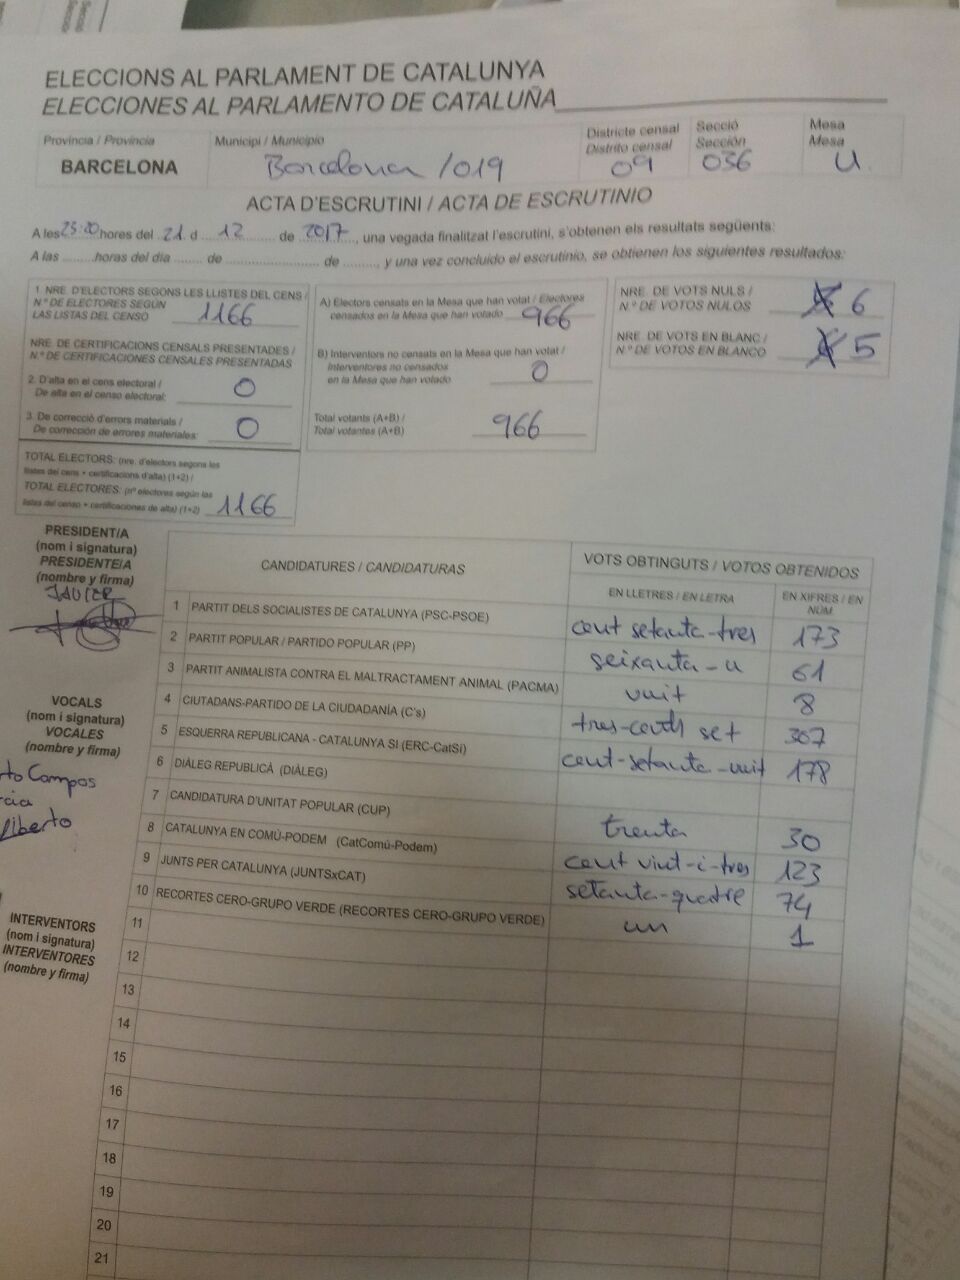 ELECCIONS AL PARLAMENT DE CATALUNYA
ELECCIONES AL PARLAMENTO DE CATALUÑA
Província / Provincia
BARCELONA
Municipi / Municipio
Barcelona /019
Districte censal
Distrito censal
09
Secció
Sección
036
Mesa
Mesa
U.
ACTA D'ESCRUTINI / ACTA DE ESCRUTINIO
A les 23:20 hores del 21 d 12 de 2017, una vegada finalitzat l'escrutini, s'obtenen els resultats següents:
A las ........horas del día ...... de ........................ de ........., y una vez concluido el escrutinio, se obtienen los siguientes resultados:
1. NRE. D'ELECTORS SEGONS LES LLISTES DEL CENS /
N.º DE ELECTORES SEGÚN
LAS LISTAS DEL CENSO 1166
NRE. DE CERTIFICACIONS CENSALS PRESENTADES /
N.º DE CERTIFICACIONES CENSALES PRESENTADAS
2. D'alta en el cens electoral /
De alta en el censo electoral: 0
3. De correcció d'errors materials /
De corrección de errores materiales: 0
TOTAL ELECTORS: (nre. d'electors segons les
llistes del cens + certificacions d'alta) (1+2) /
TOTAL ELECTORES: (nº electores según las
listas del censo + certificaciones de alta) (1+2) 1166
A) Electors censats en la Mesa que han votat / Electores
censados en la Mesa que han votado 966
B) Interventors no censats en la Mesa que han votat /
Interventores no censados
en la Mesa que han votado 0
Total votants (A+B) /
Total votantes (A+B) 966
NRE. DE VOTS NULS /
N.º DE VOTOS NULOS 6
NRE. DE VOTS EN BLANC /
N.º DE VOTOS EN BLANCO 5
PRESIDENT/A
(nom i signatura)
PRESIDENTE/A
(nombre y firma)
JAVIER
VOCALS
(nom i signatura)
VOCALES
(nombre y firma)
Campos
INTERVENTORS
(nom i signatura)
INTERVENTORES
(nombre y firma)
CANDIDATURES / CANDIDATURAS
VOTS OBTINGUTS / VOTOS OBTENIDOS
EN LLETRES / EN LETRA
EN XIFRES / EN NÚM.
1 PARTIT DELS SOCIALISTES DE CATALUNYA (PSC-PSOE) cent setanta-tres 173
2 PARTIT POPULAR / PARTIDO POPULAR (PP) seixanta-u 61
3 PARTIT ANIMALISTA CONTRA EL MALTRACTAMENT ANIMAL (PACMA) vuit 8
4 CIUTADANS-PARTIDO DE LA CIUDADANÍA (C's) tres-cents set 307
5 ESQUERRA REPUBLICANA - CATALUNYA SÍ (ERC-CatSí) cent-setanta-vuit 178
6 DIÀLEG REPUBLICÀ (DIÀLEG)
7 CANDIDATURA D'UNITAT POPULAR (CUP) trenta 30
8 CATALUNYA EN COMÚ-PODEM (CatComú-Podem) cent vint-i-tres 123
9 JUNTS PER CATALUNYA (JUNTSxCAT) setanta-quatre 74
10 RECORTES CERO-GRUPO VERDE (RECORTES CERO-GRUPO VERDE) un 1
11
12
13
14
15
16
17
18
19
20
21